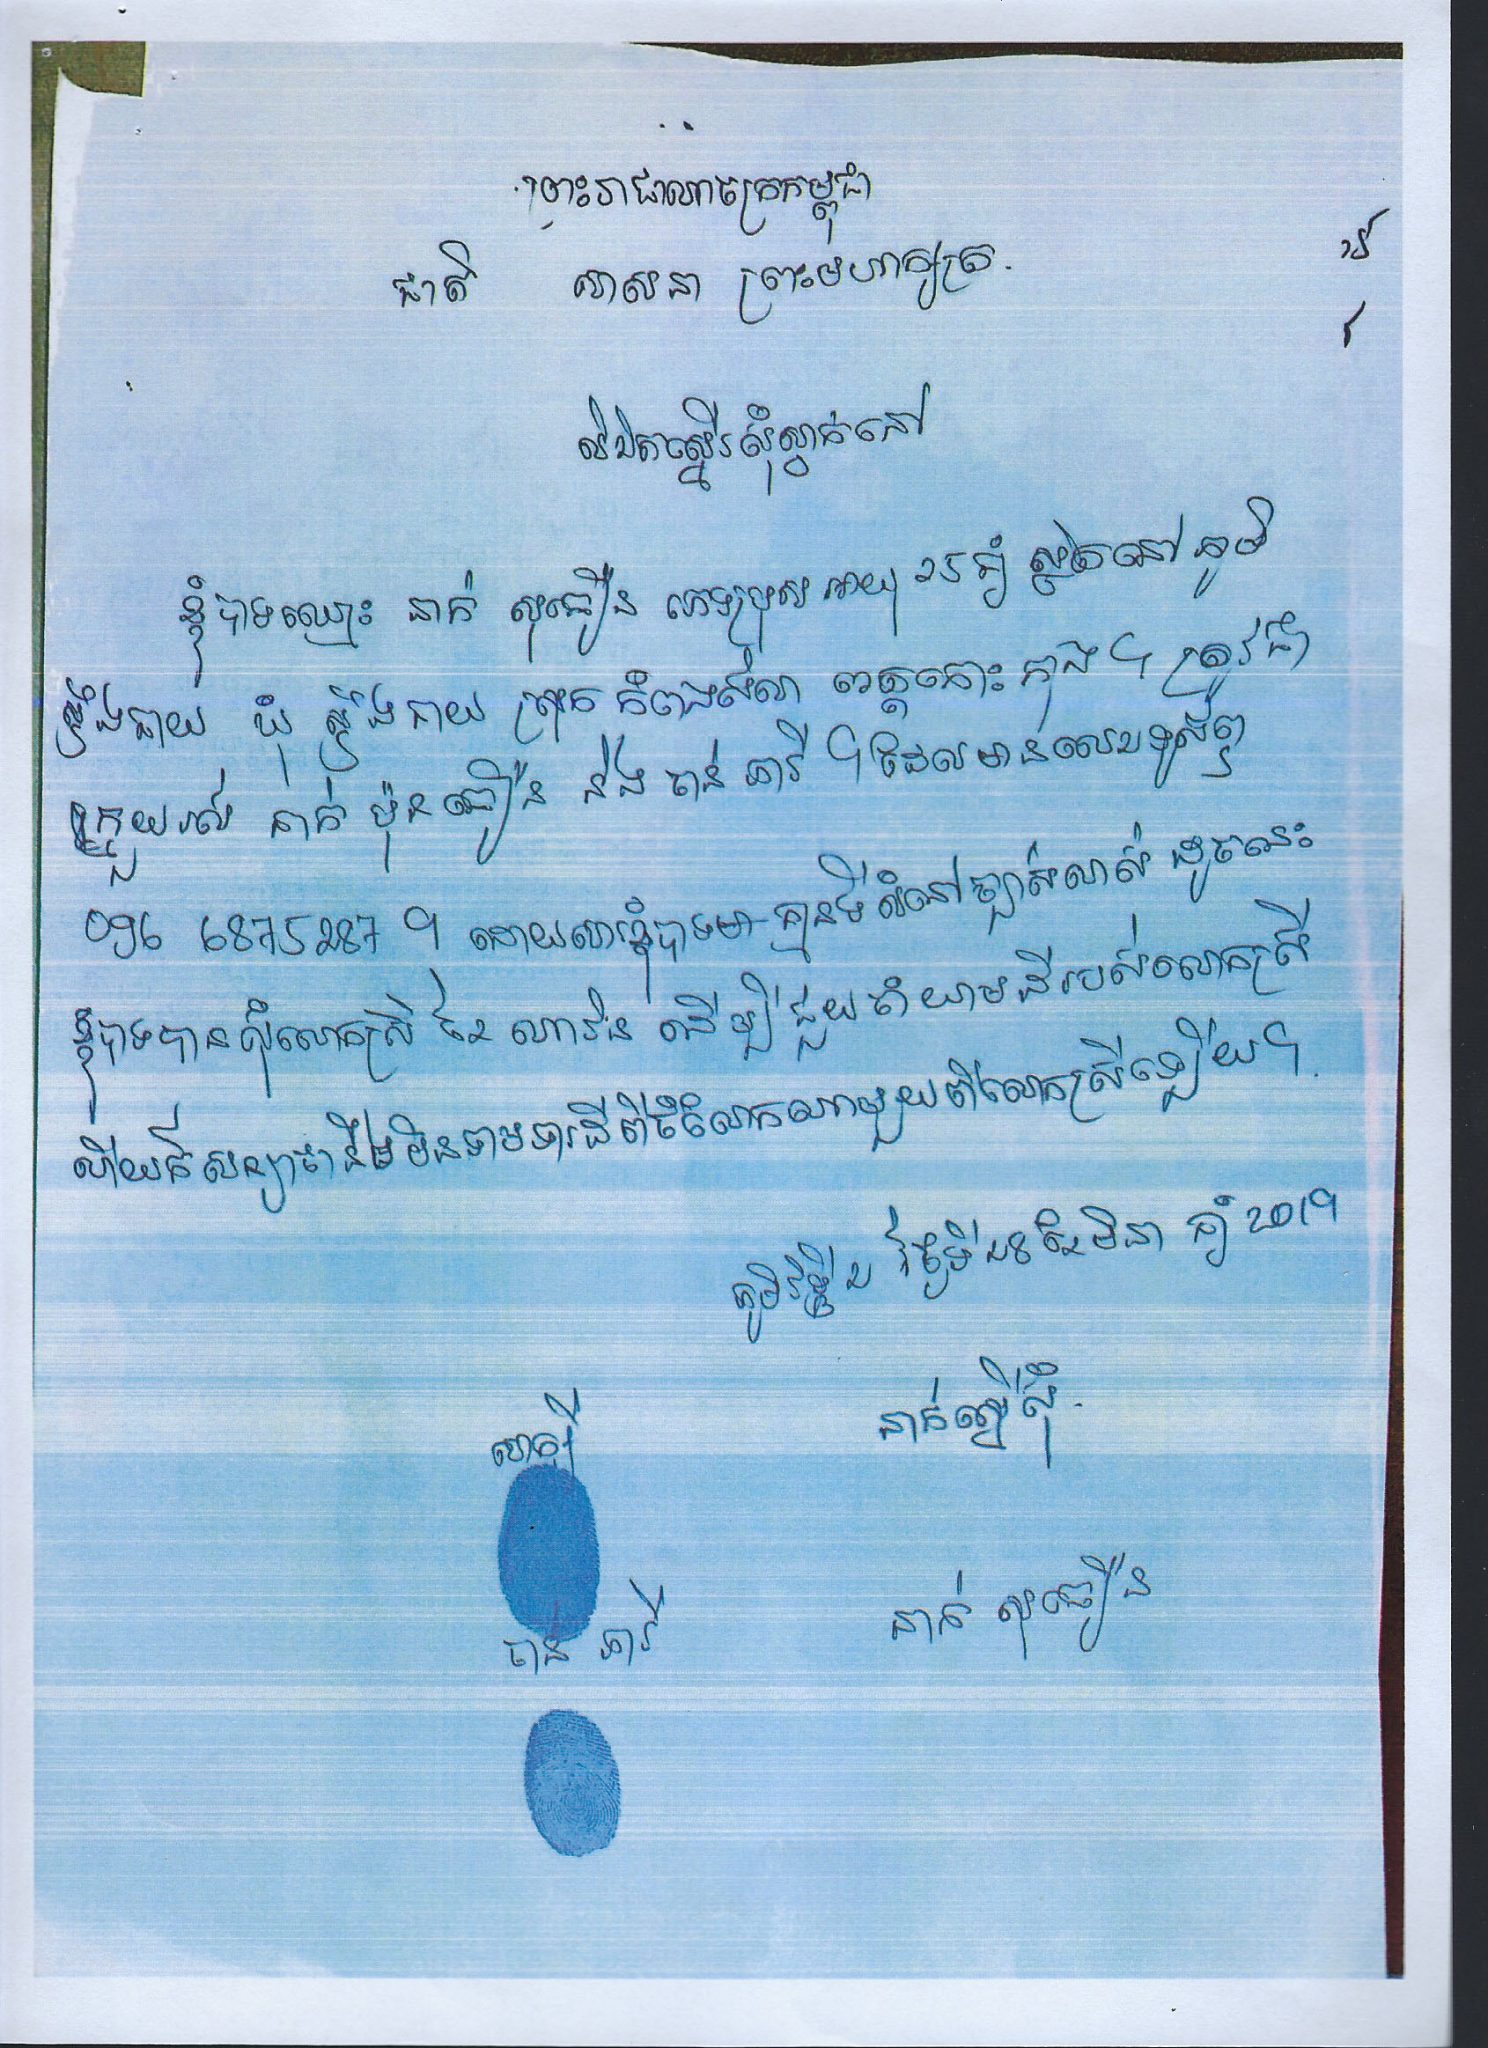 ព្រះរាជាណាចក្រកម្ពុជា
ជាតិ សាសនា ព្រះមហាក្សត្រ
លិខិតស្នើរសុំស្នាក់នៅ
ខ្ញុំបាទឈ្មោះ នាក់ សុធឿន ភេទប្រុស អាយុ ២៥ ឆ្នាំ ស្ថិតនៅ ភូមិ
ឃុំ ស្រុក កំពង់សីលា ខេត្តកោះកុង ។ ត្រូវជា
ក្មួយរបស់ នាក់ ម៉ុនធឿន និង ចាន់ ឆាវី ។ ដែលមានលេខទូរស័ព្ទ
096 6875287 ។ ដោយសារខ្ញុំបាទមា គ្មានទីលំនៅច្បាស់លាស់ ដូចនេះ
ខ្ញុំបាទបានសុំលោកស្រី កែ ណាវិន ដើម្បីជួយចាំយាមដីរបស់លោកស្រី
ហើយក៏សន្យាថានឹងមិនទាមទារដីពីចំណែកណាមួយពីលោកស្រីឡើយ។
ភូមិ ថ្ងៃទី ២៨ ខែ មិនា ឆ្នាំ 2019
សាក្សី
នាក់ស្នើសុំ
ចាន់ ឆាវី
នាក់ សុធឿន